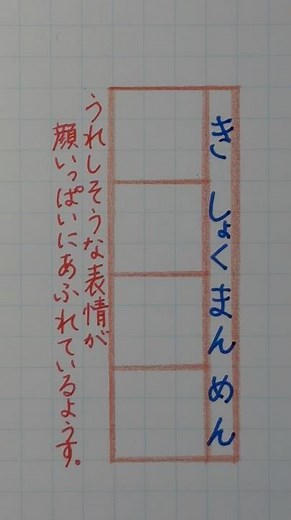 きしょくまんめん
うれしそうな表情が
顔いっぱいにあふれているようす。